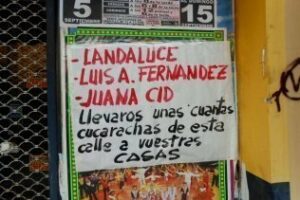 5
SEPTIEMBRE
DOMINGO
15
- LANDALUCE
- LUIS A. FERNANDEZ
- JUANA CID
Llevaros unas cuantas
cucarachas de esta
calle a vuestras
CASAS